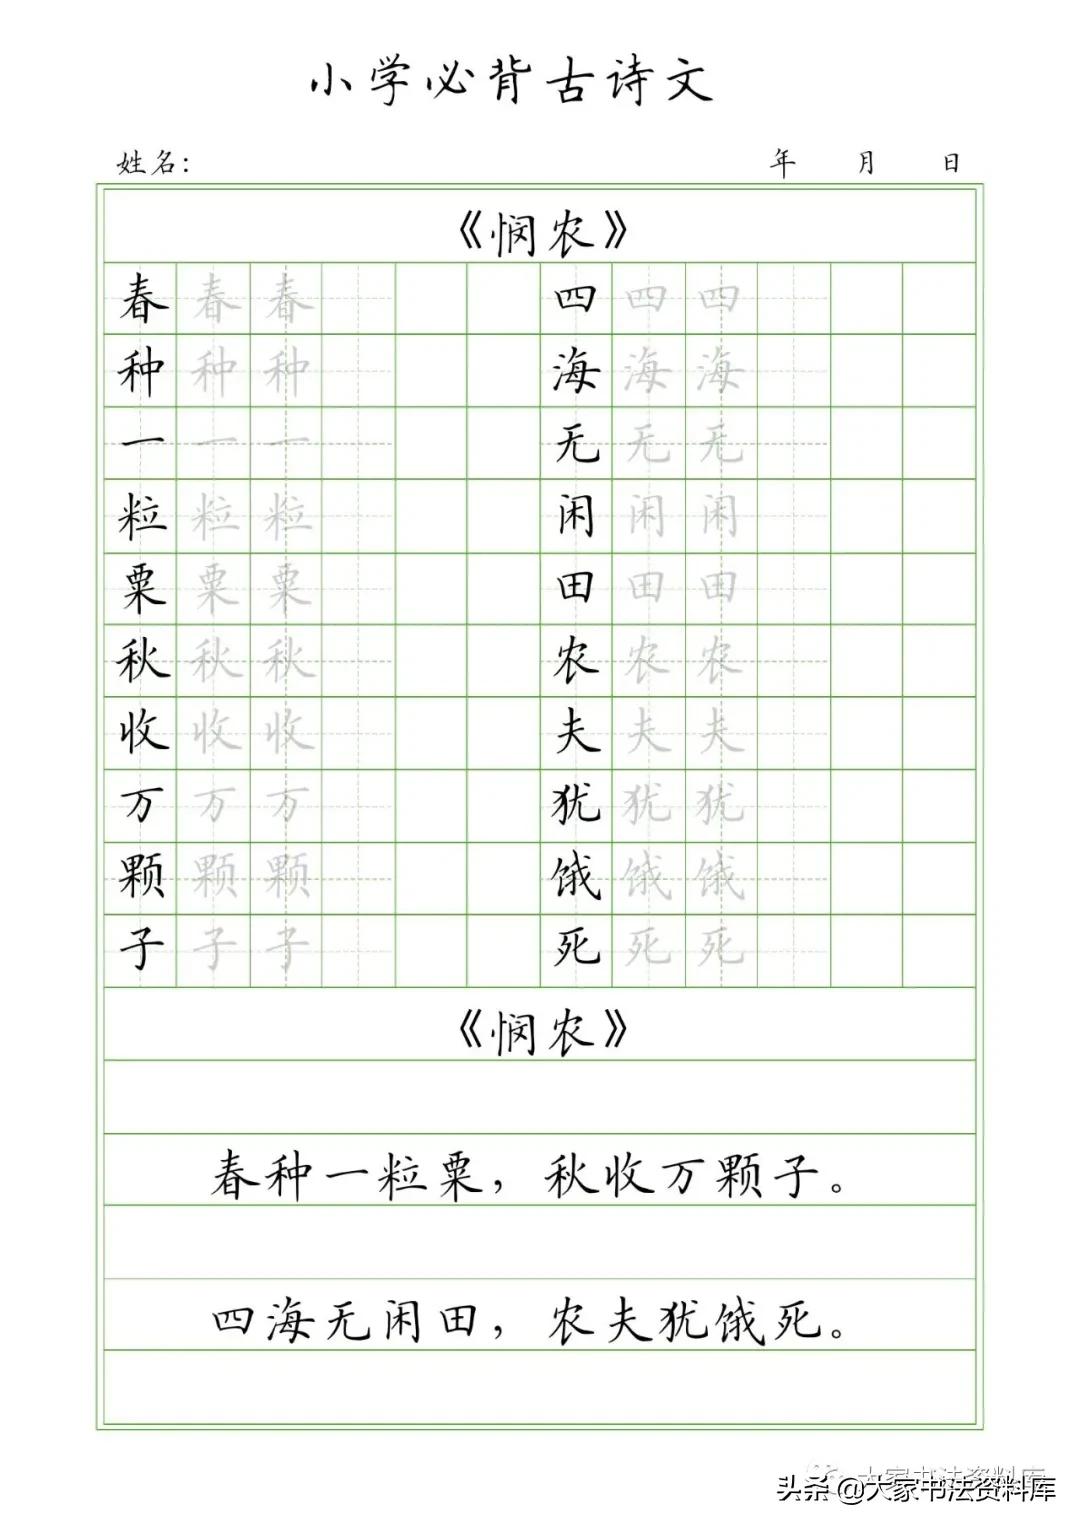 小学必背古诗文
姓名: 年 月 日
《悯农》
春 春 春 四 四 四
种 种 种 海 海 海
一 一 一 无 无 无
粒 粒 粒 闲 闲 闲
粟 粟 粟 田 田 田
秋 秋 秋 农 农 农
收 收 收 夫 夫 夫
万 万 万 犹 犹 犹
颗 颗 颗 饿 饿 饿
子 子 子 死 死 死
《悯农》
春种一粒粟，秋收万颗子。
四海无闲田，农夫犹饿死。
大家书法资料库
头条 @大家书法资料库